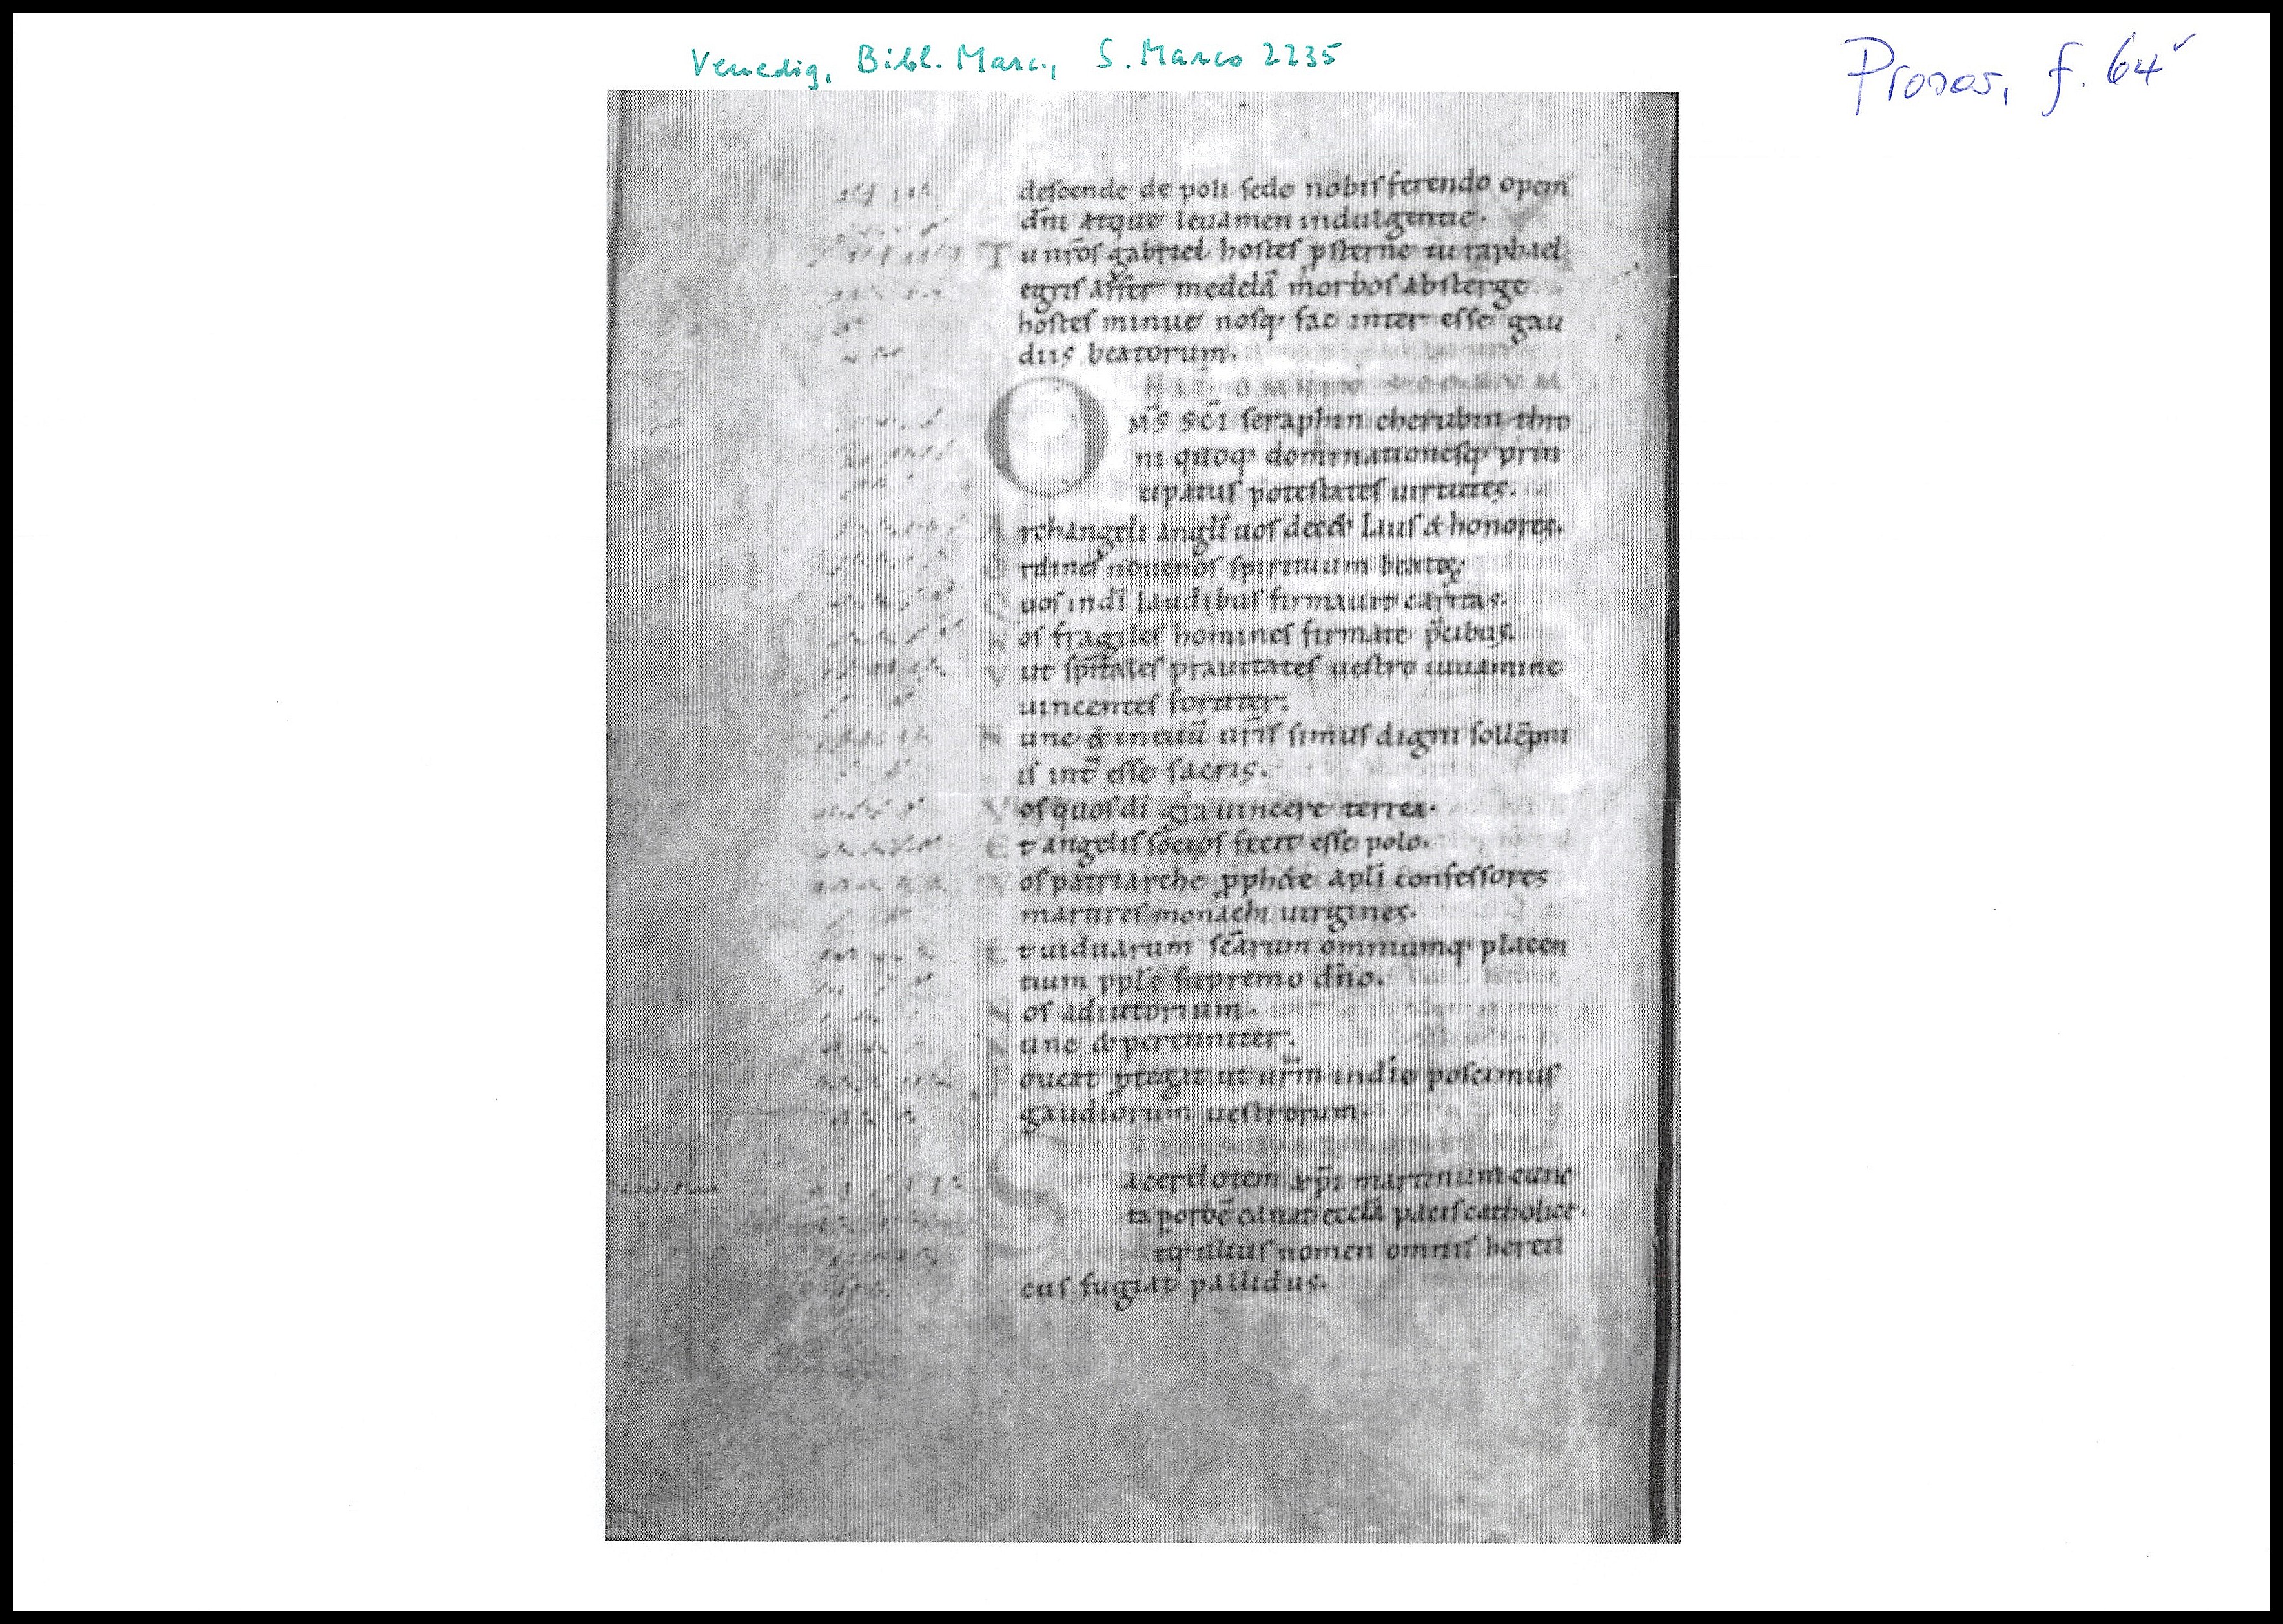 Venedig, Bibl. Marc., S. Marco 2235
Prosar, f. 64v
deſcende de poli ſede nobiſ ferendo opem
dn̄i atque leuamen indulgentie.
Tu nr̄oſ gabriel hoſteſ ꝓſterne tu raphael
egriſ affer medelā morboſ abſterge
hoſteſ minue noſq; fac inter eſſe gau
diis beatorum.
OMS̄ SC̄I ſeraphin cherubin thro
ni quoq; dominationeſq; prin
cipatuſ poteſtateſ uirtutes.
Archangeli angl̄i uoſ dec& lauſ & honores.
Ordineſ nouenoſ ſpirituum beatoꝝ.
Quoſ indī laudibuſ firmauit caritas.
Noſ fragileſ homineſ firmate p̄cibus.
Vut ſpītaleſ prauitateſ ueſtro iuuamine
uincenteſ fortiter.
Nunc & in euū ur̄iſ ſimuſ digni ſollēpni
iſ int̄ eſſe ſacris.
Voſ quoſ dī gr̄a uincere terrea.
Et angeliſ ſocioſ fecit eſſe polo.
Voſ patriarche ꝓph&e apl̄i confeſſores
martireſ monachi uirgines.
Et uiduarum ſcārum omniumq; placen
tium ppl̄s ſupremo dn̄o.
Noſ adiutorium.
Nunc & perenniter.
Foueat ꝓtegat ut ur̄m in die poſcimuſ
gaudiorum ueſtrorum.
Sacerdotem xp̄i martinum cunc
ta ꝑ orbē canat eccl̄a paciſ catholice.
tq; illiuſ nomen omniſ hereti
cuſ fugiat pallidus.